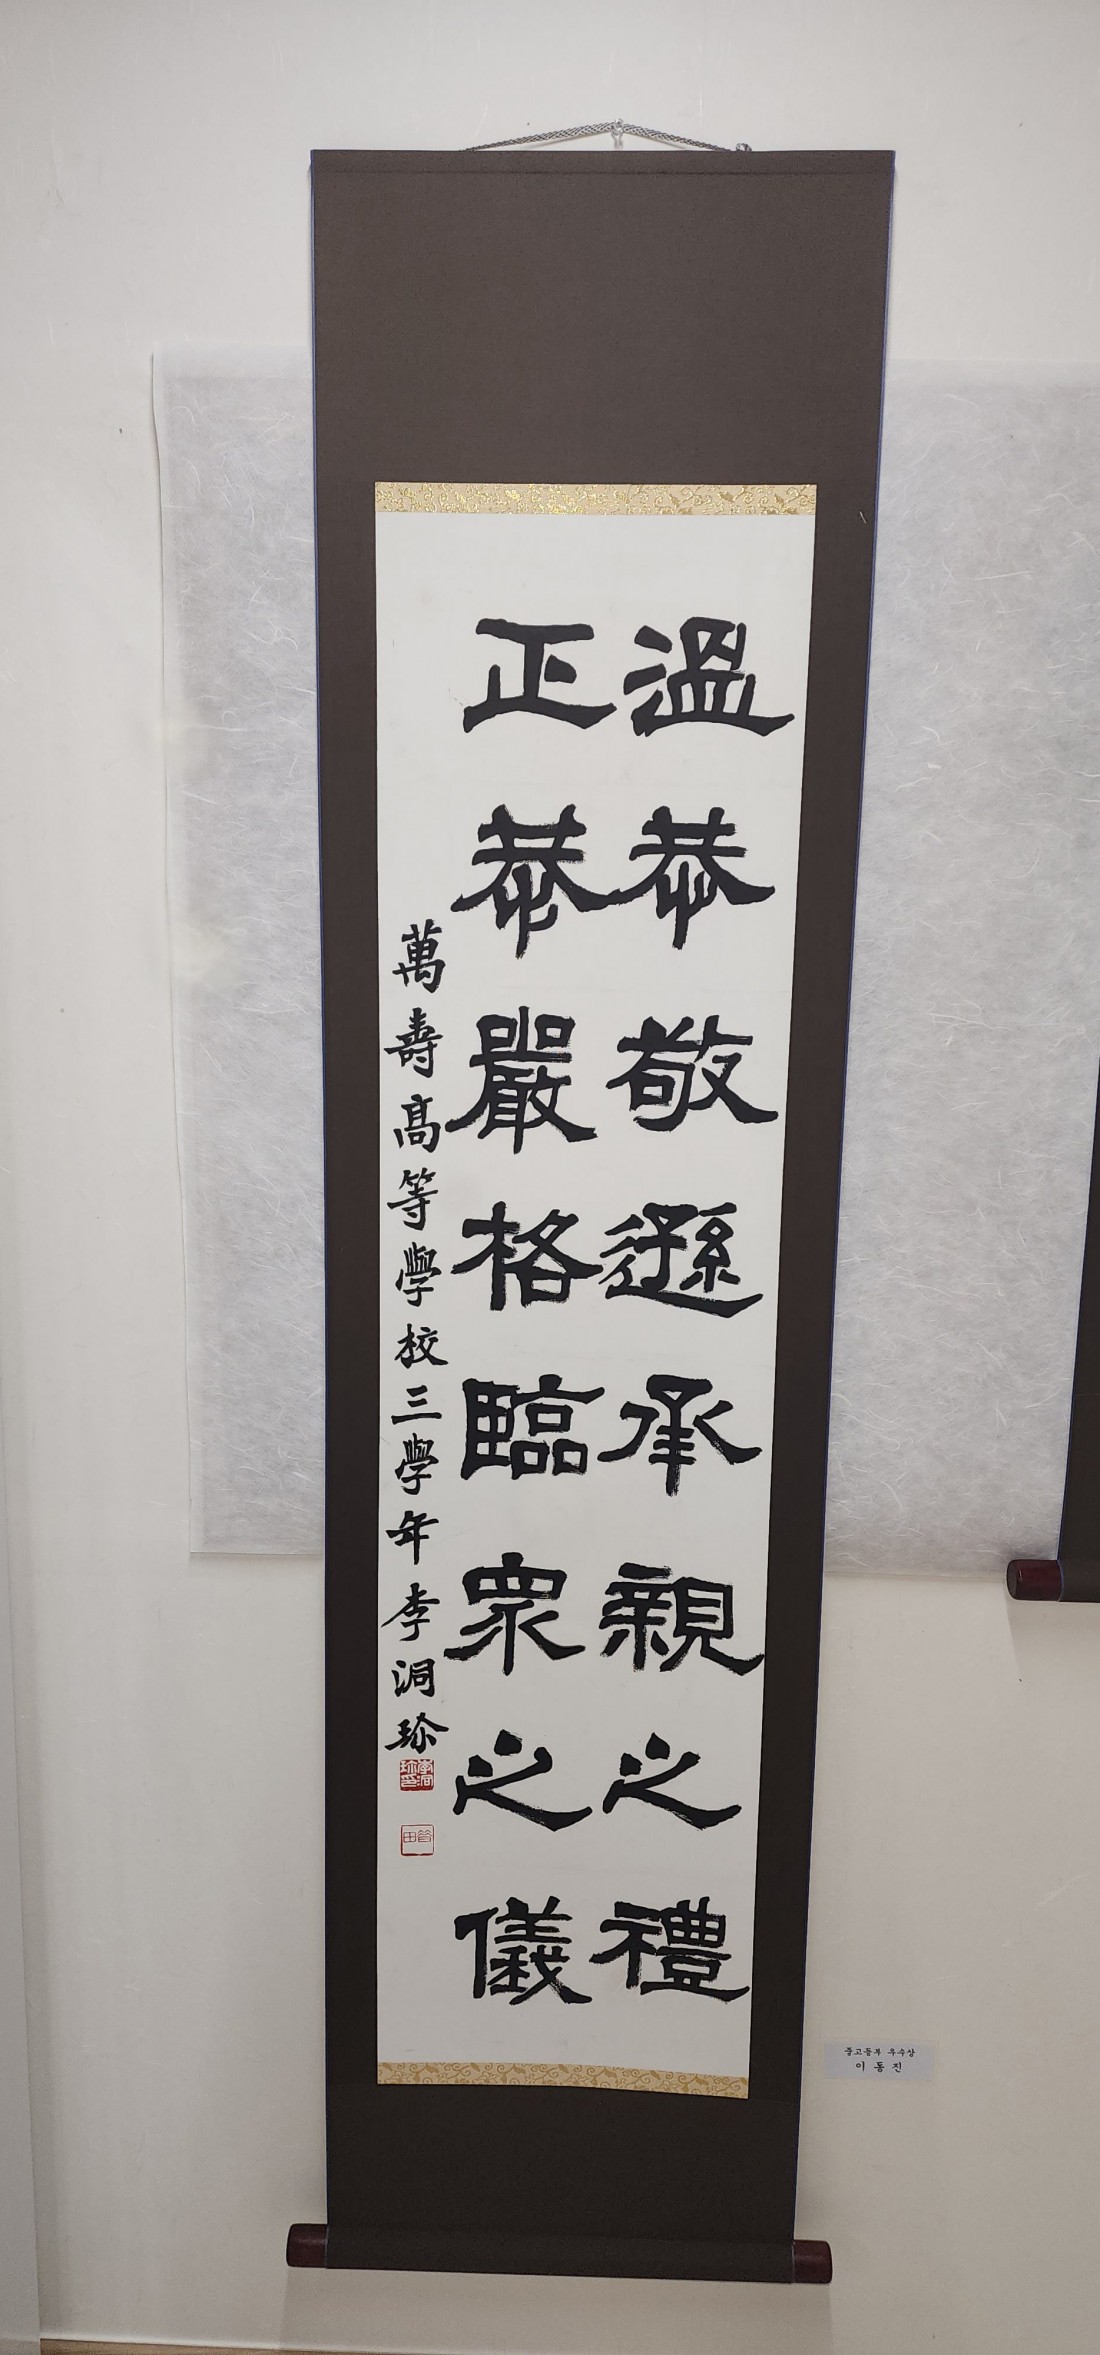 溫恭敬遜承親之禮
正恭嚴格臨衆之儀
萬壽高等學校三學年李洞珍
중고등부 우수상
이동진